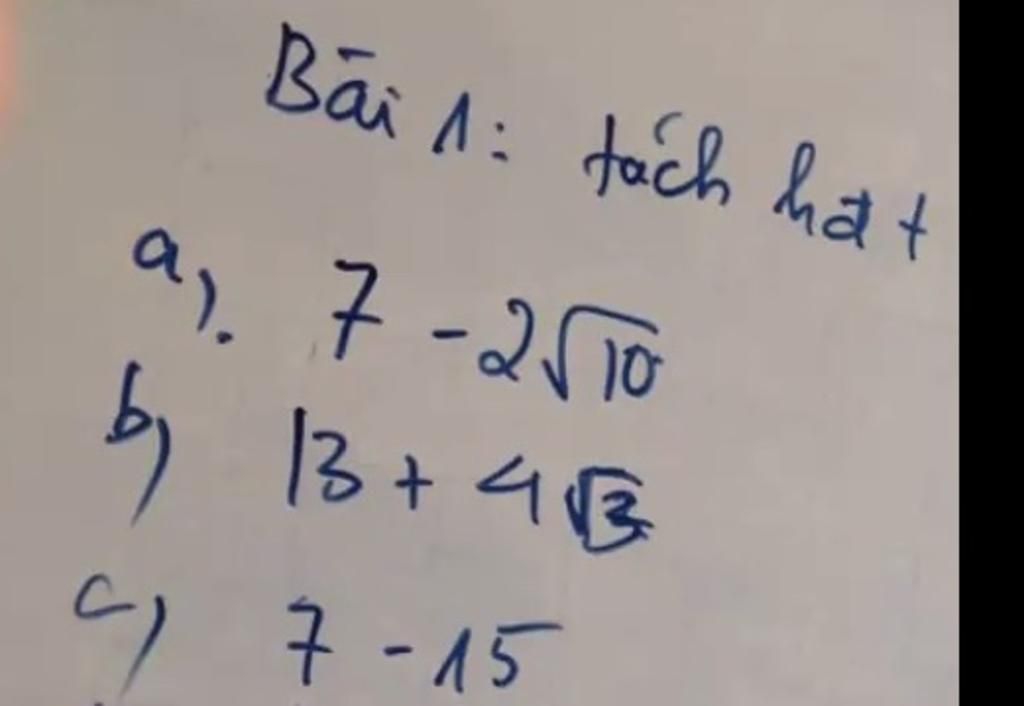 Bài 1: tách hđt
a). 7 - 2√10
b) 13 + 4√3
c) 7 - 15